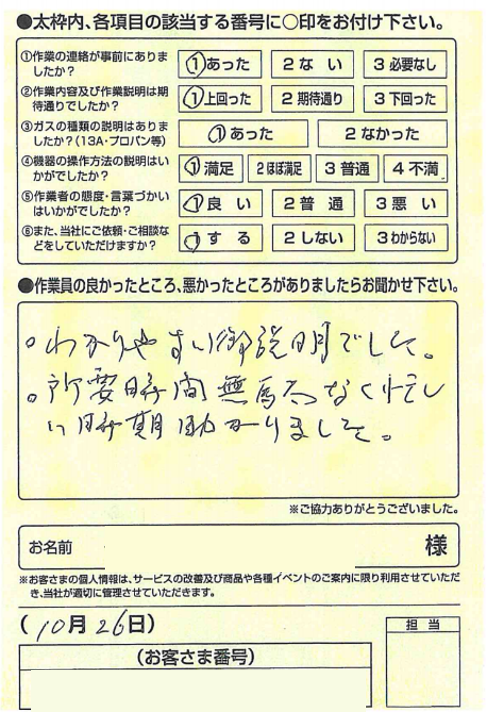 ●太枠内、各項目の該当する番号に○印をお付け下さい。
①作業の連絡が事前にありましたか？ 1 あった 2 な い 3 必要なし
②作業内容及び作業説明は期待通りでしたか？ 1 上回った 2 期待通り 3 下回った
③ガスの種類の説明はありましたか？（13A・プロパン等） 1 あった 2 なかった
④機器の操作方法の説明はいかがでしたか？ 1 満足 2 ほぼ満足 3 普通 4 不満
⑤作業者の態度・言葉づかいはいかがでしたか？ 1 良 い 2 普 通 3 悪 い
⑥また、当社にご依頼・ご相談などをしていただけますか？ 1 す る 2 しない 3 わからない
●作業員の良かったところ、悪かったところがありましたらお聞かせ下さい。
。わかりやすい御説明でした。
。所要時間無駄なく忙し
い時期助かりました。
※ご協力ありがとうございました。
お名前 様
※お客さまの個人情報は、サービスの改善及び商品や各種イベントのご案内に限り利用させていただ
き、当社が適切に管理させていただきます。
（10月26日）
担 当
（お客さま番号）